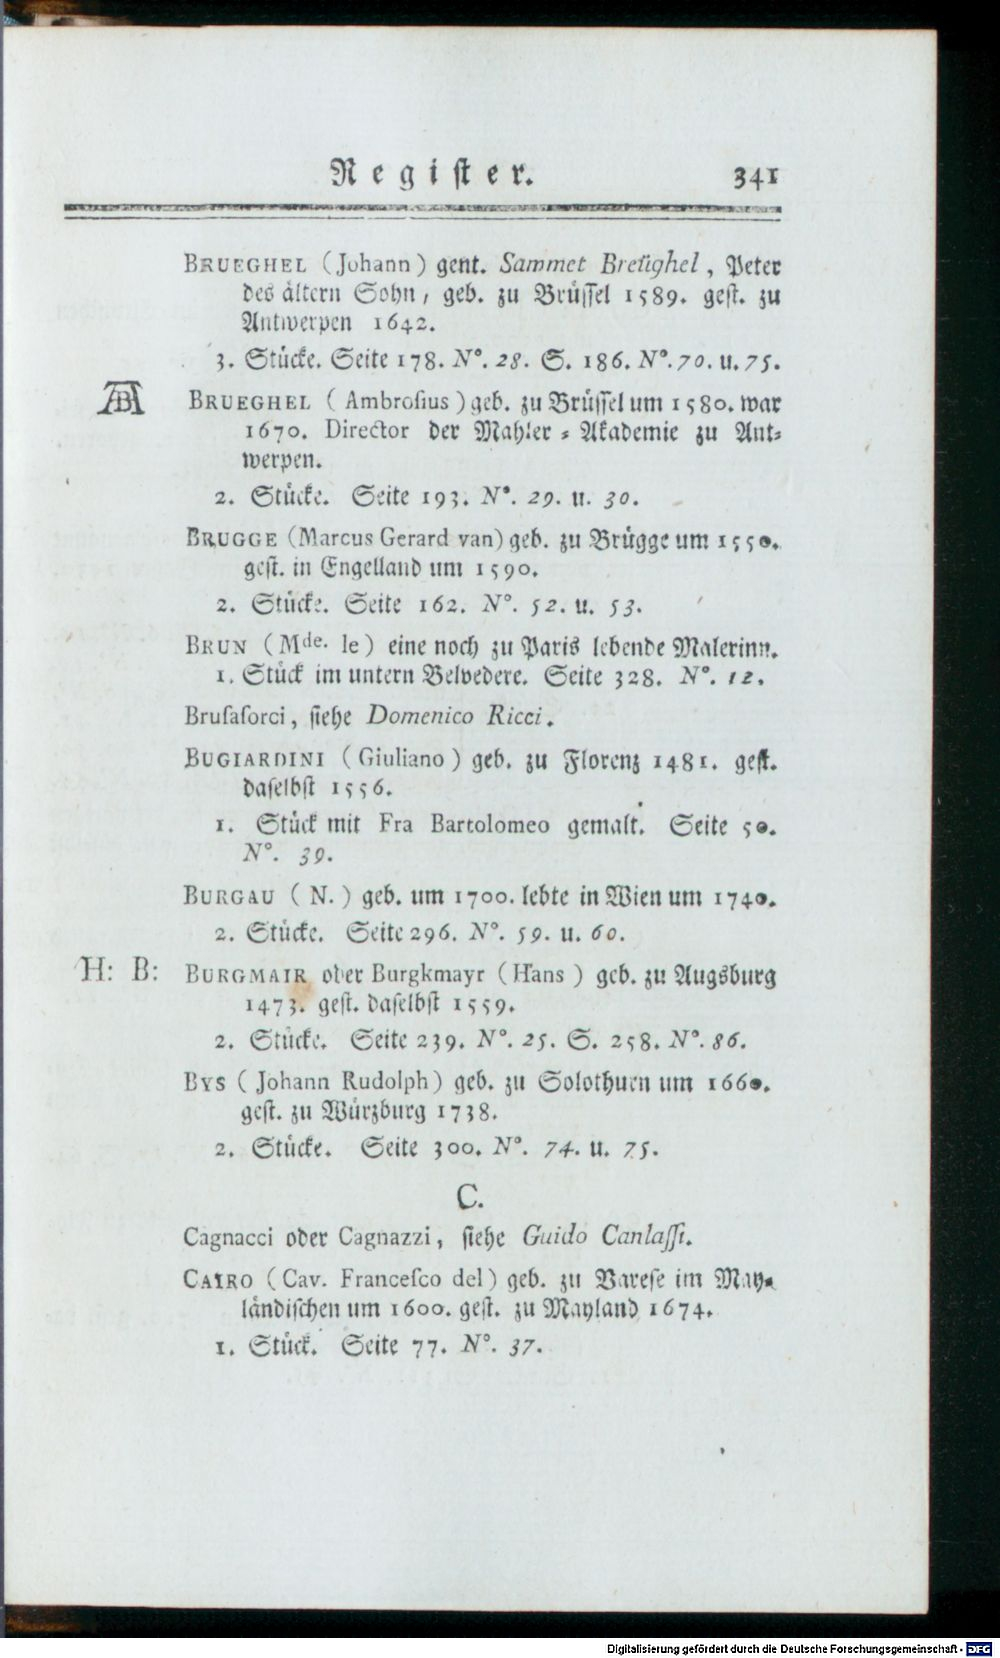 Register. 341
BRUEGHEL (Johann) gent. Sammet Breüghel, Peter
des ältern Sohn, geb. zu Brüssel 1589. gest. zu
Antwerpen 1642.
3. Stücke. Seite 178. N°. 28. S. 186. N°. 70. u. 75.
AB BRUEGHEL (Ambrosius) geb. zu Brüssel um 1580. war
1670. Director der Mahler-Akademie zu Ant-
werpen.
2. Stücke. Seite 193. N°. 29. u. 30.
BRUGGE (Marcus Gerard van) geb. zu Brügge um 1550.
gest. in Engelland um 1590.
2. Stücke. Seite 162. N°. 52. u. 53.
BRUN (Mde. le) eine noch zu Paris lebende Malerinn.
1. Stück im untern Belvedere. Seite 328. N°. 12.
Brusasorci, siehe Domenico Ricci.
BUGIARDINI (Giuliano) geb. zu Florenz 1481. gest.
daselbst 1556.
1. Stück mit Fra Bartolomeo gemalt. Seite 50.
N°. 39.
BURGAU (N.) geb. um 1700. lebte in Wien um 1740.
2. Stücke. Seite 296. N°. 59. u. 60.
H: B: BURGMAIR oder Burgkmayr (Hans) geb. zu Augsburg
1473. gest. daselbst 1559.
2. Stücke. Seite 239. N°. 25. S. 258. N°. 86.
BYS (Johann Rudolph) geb. zu Solothurn um 1660.
gest. zu Würzburg 1738.
2. Stücke. Seite 300. N°. 74. u. 75.
C.
Cagnacci oder Cagnazzi, siehe Guido Canlassi.
CAIRO (Cav. Francesco del) geb. zu Varese im May-
ländischen um 1600. gest. zu Mayland 1674.
1. Stück. Seite 77. N°. 37.
Digitalisierung gefördert durch die Deutsche Forschungsgemeinschaft - DFG